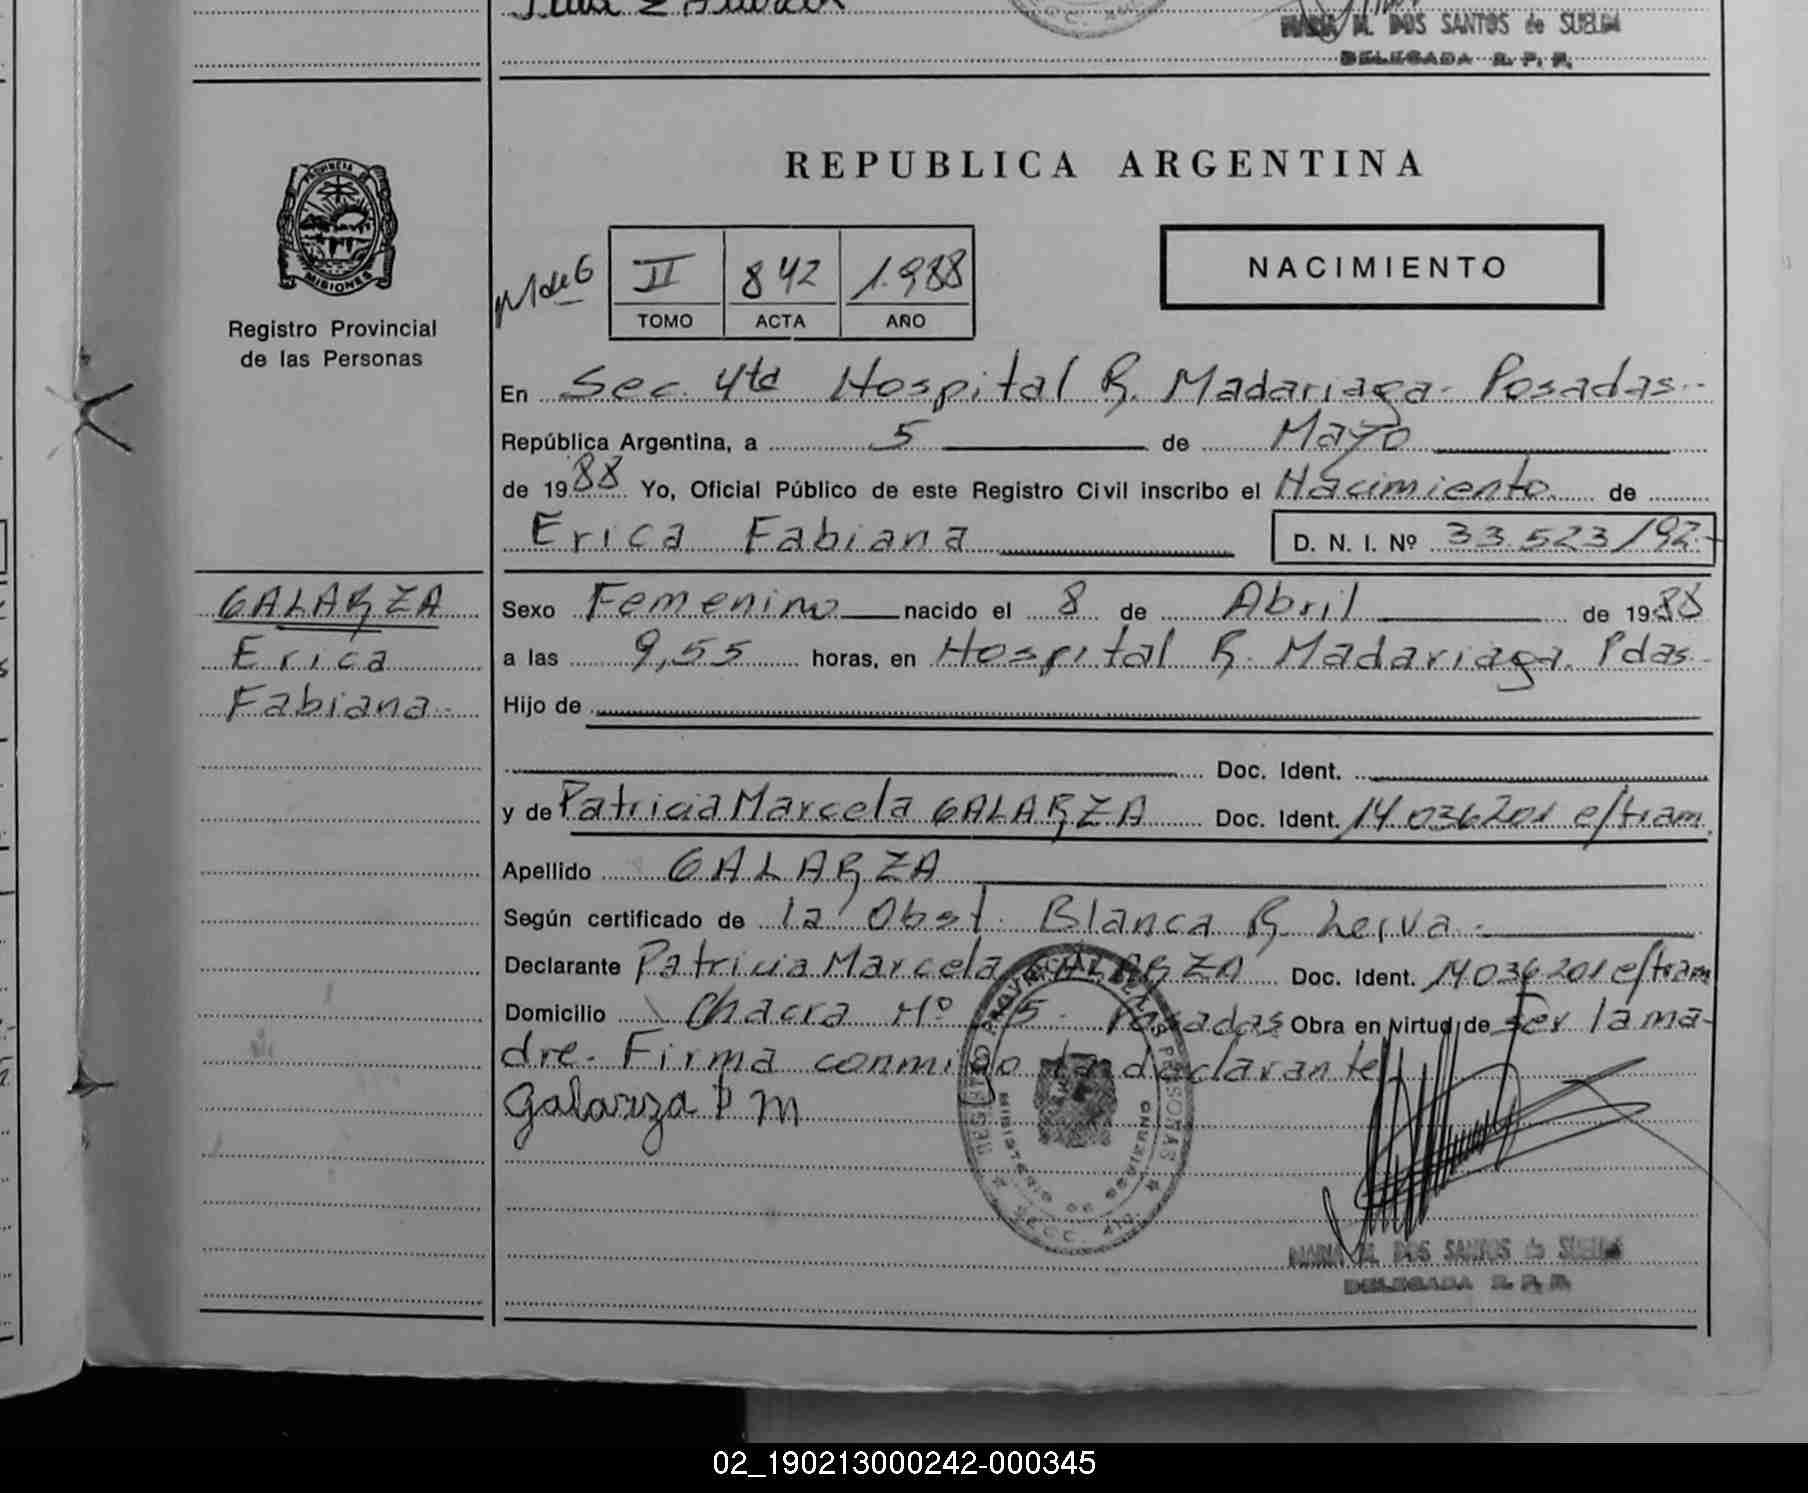 MARIA M. DOS SANTOS de SUELDA
DELEGADA R. P. P.
PROVINCIA DE
MISIONES
Registro Provincial
de las Personas
REPUBLICA ARGENTINA
II 842 1.988
TOMO ACTA AÑO
NACIMIENTO
En Sec. 4ta Hospital R. Madariaga - Posadas -
República Argentina, a 5 de Mayo
de 1988 Yo, Oficial Público de este Registro Civil inscribo el Nacimiento de
Erica Fabiana D. N. I. Nº 33.523/92.-
GALARZA
Erica
Fabiana -
Sexo Femenino nacido el 8 de Abril de 1988
a las 9,55 horas, en Hospital R. Madariaga. Pdas -
Hijo de
Doc. Ident.
y de Patricia Marcela GALARZA Doc. Ident. 14.036.201 e/tram.
Apellido GALARZA
Según certificado de la Obst. Blanca R. Leiva -
Declarante Patricia Marcela GALARZA Doc. Ident. 14.036.201 e/tram
Domicilio Chacra Nº 15 - Posadas Obra en virtud de ser la ma-
dre - Firma conmigo la declarante
Galarza P M
REGISTRO PROVINCIAL DE LAS PERSONAS
MINISTERIO DE GOBIERNO
SECC. 4ta.
MARIA M. DOS SANTOS de SUELDA
DELEGADA R. P. P.
02_190213000242-000345